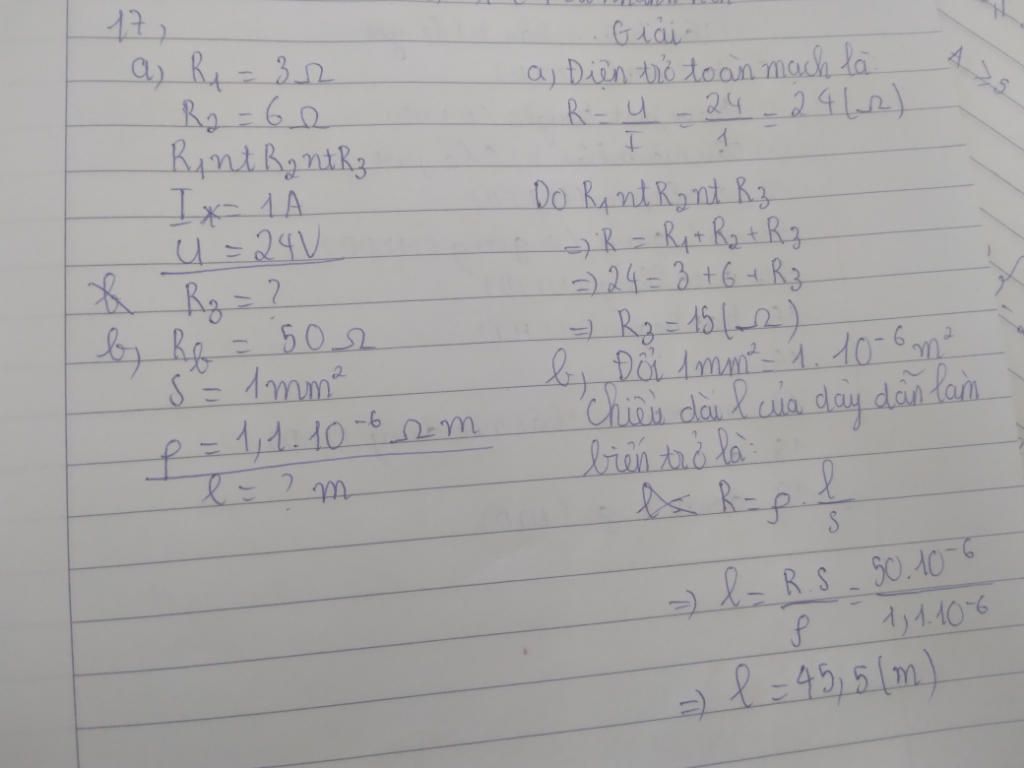 17,
a, R₁ = 3Ω
R₂ = 6Ω
R₁ nt R₂ nt R₃
I = 1A
U = 24V
R₃ = ?
b, R_b = 50Ω
S = 1mm²
ρ = 1,1.10⁻⁶ Ω.m
l = ? m
Giải
a, Điện trở toàn mạch là
R = U/I = 24/1 = 24(Ω)
Do R₁ nt R₂ nt R₃
=> R = R₁ + R₂ + R₃
=> 24 = 3 + 6 + R₃
=> R₃ = 15(Ω)
b, Đổi 1mm² = 1.10⁻⁶ m²
Chiều dài l của dây dẫn làm
biến trở là:
R = ρ . l/S
=> l = R.S/ρ = 50.10⁻⁶/1,1.10⁻⁶
=> l = 45,5(m)